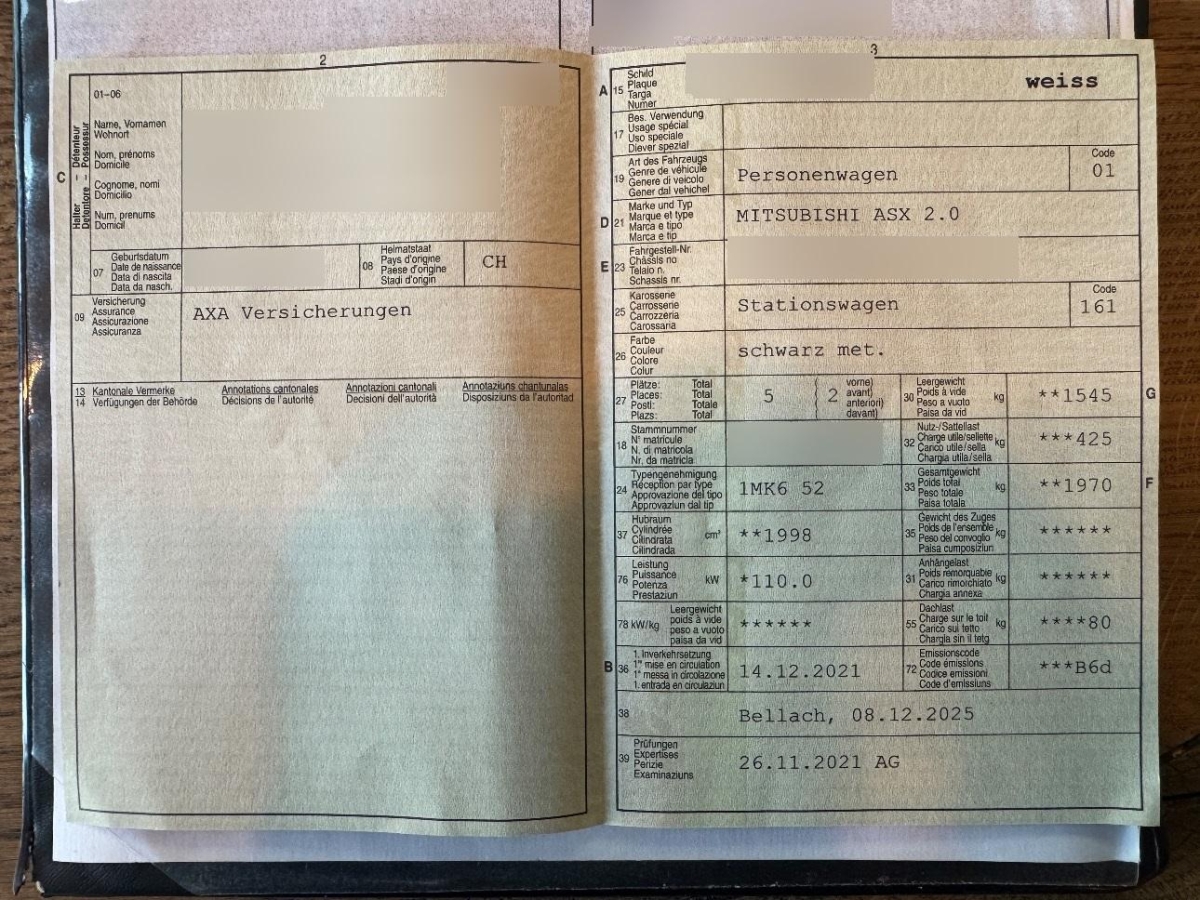 2
01–06
C
Halter – Détenteur
Detentore – Possessur
Name, Vornamen
Wohnort
Nom, prénoms
Domicile
Cognome, nomi
Domicilio
Num, prenums
Domicil
07
Geburtsdatum
Date de naissance
Data di nascita
Data da nasch.
08
Heimatstaat
Pays d'origine
Paese d'origine
Stadi d'origin
CH
09
Versicherung
Assurance
Assicurazione
Assicuranza
AXA Versicherungen
13 Kantonale Vermerke Annotations cantonales Annotazioni cantonali Annotaziuns chantunalas
14 Verfügungen der Behörde Décisions de l'autorité Decisioni dell'autorità Disposiziuns da l'autoritad
3
A 15
Schild
Plaque
Targa
Numer
weiss
17
Bes. Verwendung
Usage spécial
Uso speciale
Diever spezial
19
Art des Fahrzeugs
Genre de véhicule
Genere di veicolo
Gener dal vehichel
Personenwagen
Code
01
D 21
Marke und Typ
Marque et type
Marca e tipo
Marca e tip
MITSUBISHI ASX 2.0
E 23
Fahrgestell-Nr.
Châssis no
Telaio n.
Schassis nr.
25
Karosserie
Carrosserie
Carrozzeria
Carossaria
Stationswagen
Code
161
26
Farbe
Couleur
Colore
Colur
schwarz met.
27
Plätze: Total
Places: Total
Posti: Totale
Plazs: Total
5 ( 2
vorne)
avant)
anteriori)
davant)
30
Leergewicht
Poids à vide
Peso a vuoto
Paisa da vid
kg
**1545
G
18
Stammnummer
N° matricule
N. di matricola
Nr. da matricla
32
Nutz-/Sattellast
Charge utile/sellette
Carico utile/sella
Chargia utila/sella
kg
***425
24
Typengenehmigung
Réception par type
Approvazione del tipo
Approvaziun dal tip
1MK6 52
33
Gesamtgewicht
Poids total
Peso totale
Paisa totala
kg
**1970
F
37
Hubraum
Cylindrée
Cilindrata
Cilindrada
cm³
**1998
35
Gewicht des Zuges
Poids de l'ensemble
Peso del convoglio
Paisa cumposiziun
kg
******
76
Leistung
Puissance
Potenza
Prestaziun
kW
*110.0
31
Anhängelast
Poids remorquable
Carico rimorchiato
Chargia annexa
kg
******
78 kW/kg
Leergewicht
poids à vide
peso a vuoto
paisa da vid
******
55
Dachlast
Charge sur le toit
Carico sul tetto
Chargia sin il tetg
kg
****80
B 36
1. Inverkehrsetzung
1re mise en circulation
1a messa in circolazione
1. entrada en circulaziun
14.12.2021
72
Emissionscode
Code émissions
Codice emissioni
Code d'emissiuns
***B6d
38
Bellach, 08.12.2025
39
Prüfungen
Expertises
Perizie
Examinaziuns
26.11.2021 AG